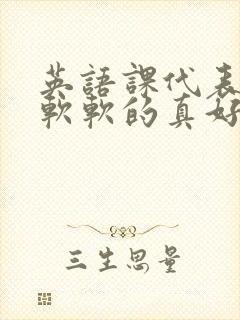 英語課代表
軟軟的真好
三生思量